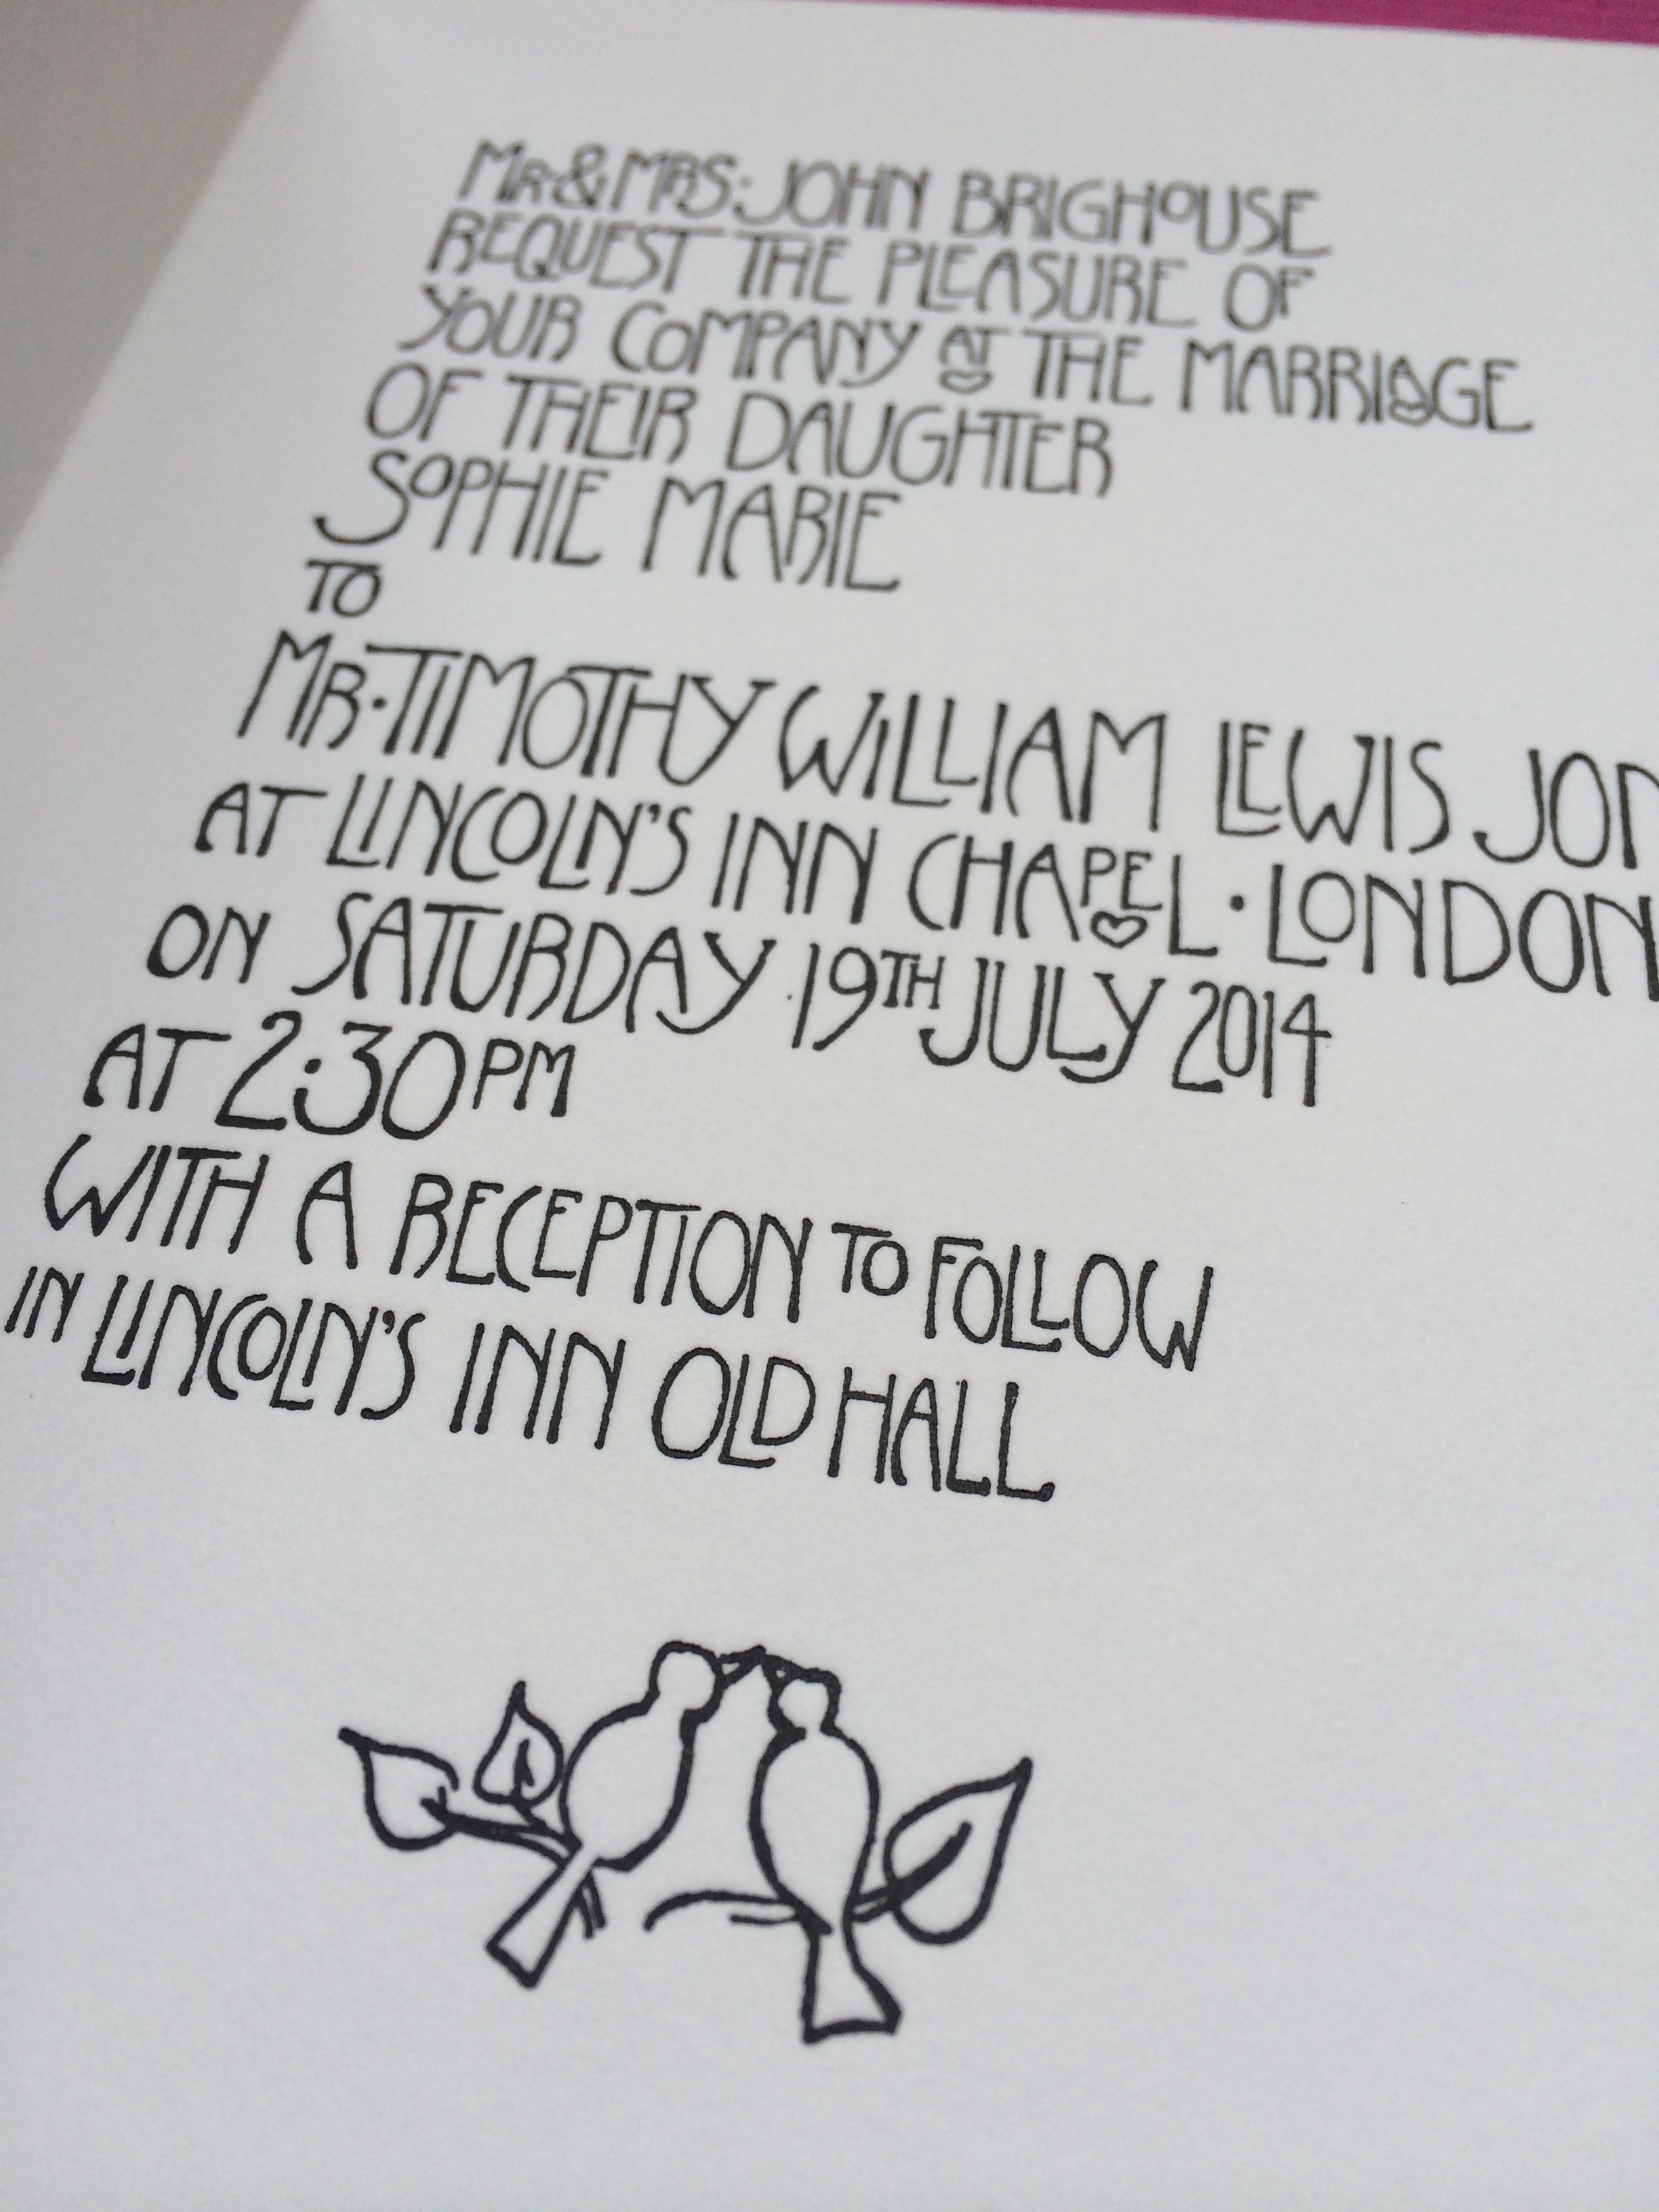 MR & MRS: JOHN BRIGHOUSE
REQUEST THE PLEASURE OF
YOUR COMPANY AT THE MARRIAGE
OF THEIR DAUGHTER
SOPHIE MARIE
TO
MR·TIMOTHY WILLIAM LEWIS
AT LINCOLN'S INN CHAPEL · LONDON
ON SATURDAY 19TH JULY 2014
AT 2:30PM
WITH A RECEPTION TO FOLLOW
IN LINCOLN'S INN OLD HALL